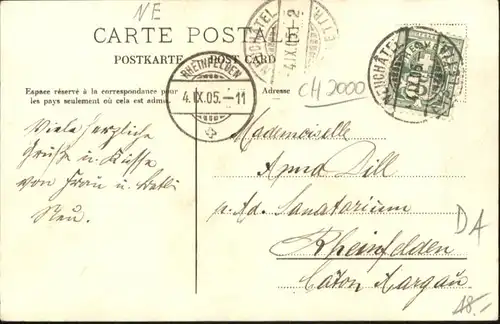 NE
CARTE POSTALE
POSTKARTE POST CARD
Espace réservé à la correspondance pour
les pays seulement où cela est admis.
Adresse
RHEINFELDEN
4.IX.05.-11
4.IX.05.-2
NEUCHÂTEL
CH 2000
Viele herzliche
Grüsse u. Küsse
von Frau u.
Mademoiselle
Anna Dill
p. Ad. Sanatorium
Rheinfelden
Caton Aargau
DA
18.-